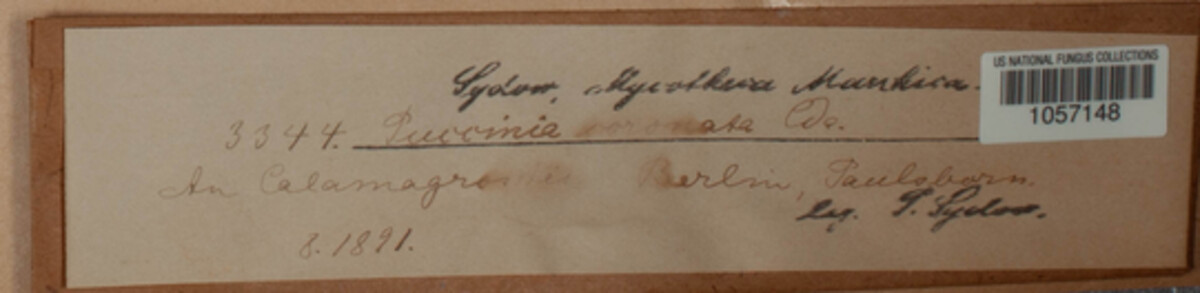 Sydow, Mycotheca Marchica.
US NATIONAL FUNGUS COLLECTIONS
1057148
3344. Puccinia coronata Cda.
An Calamagrostis Berlin, Paulsborn.
leg. P. Sydow.
8. 1891.